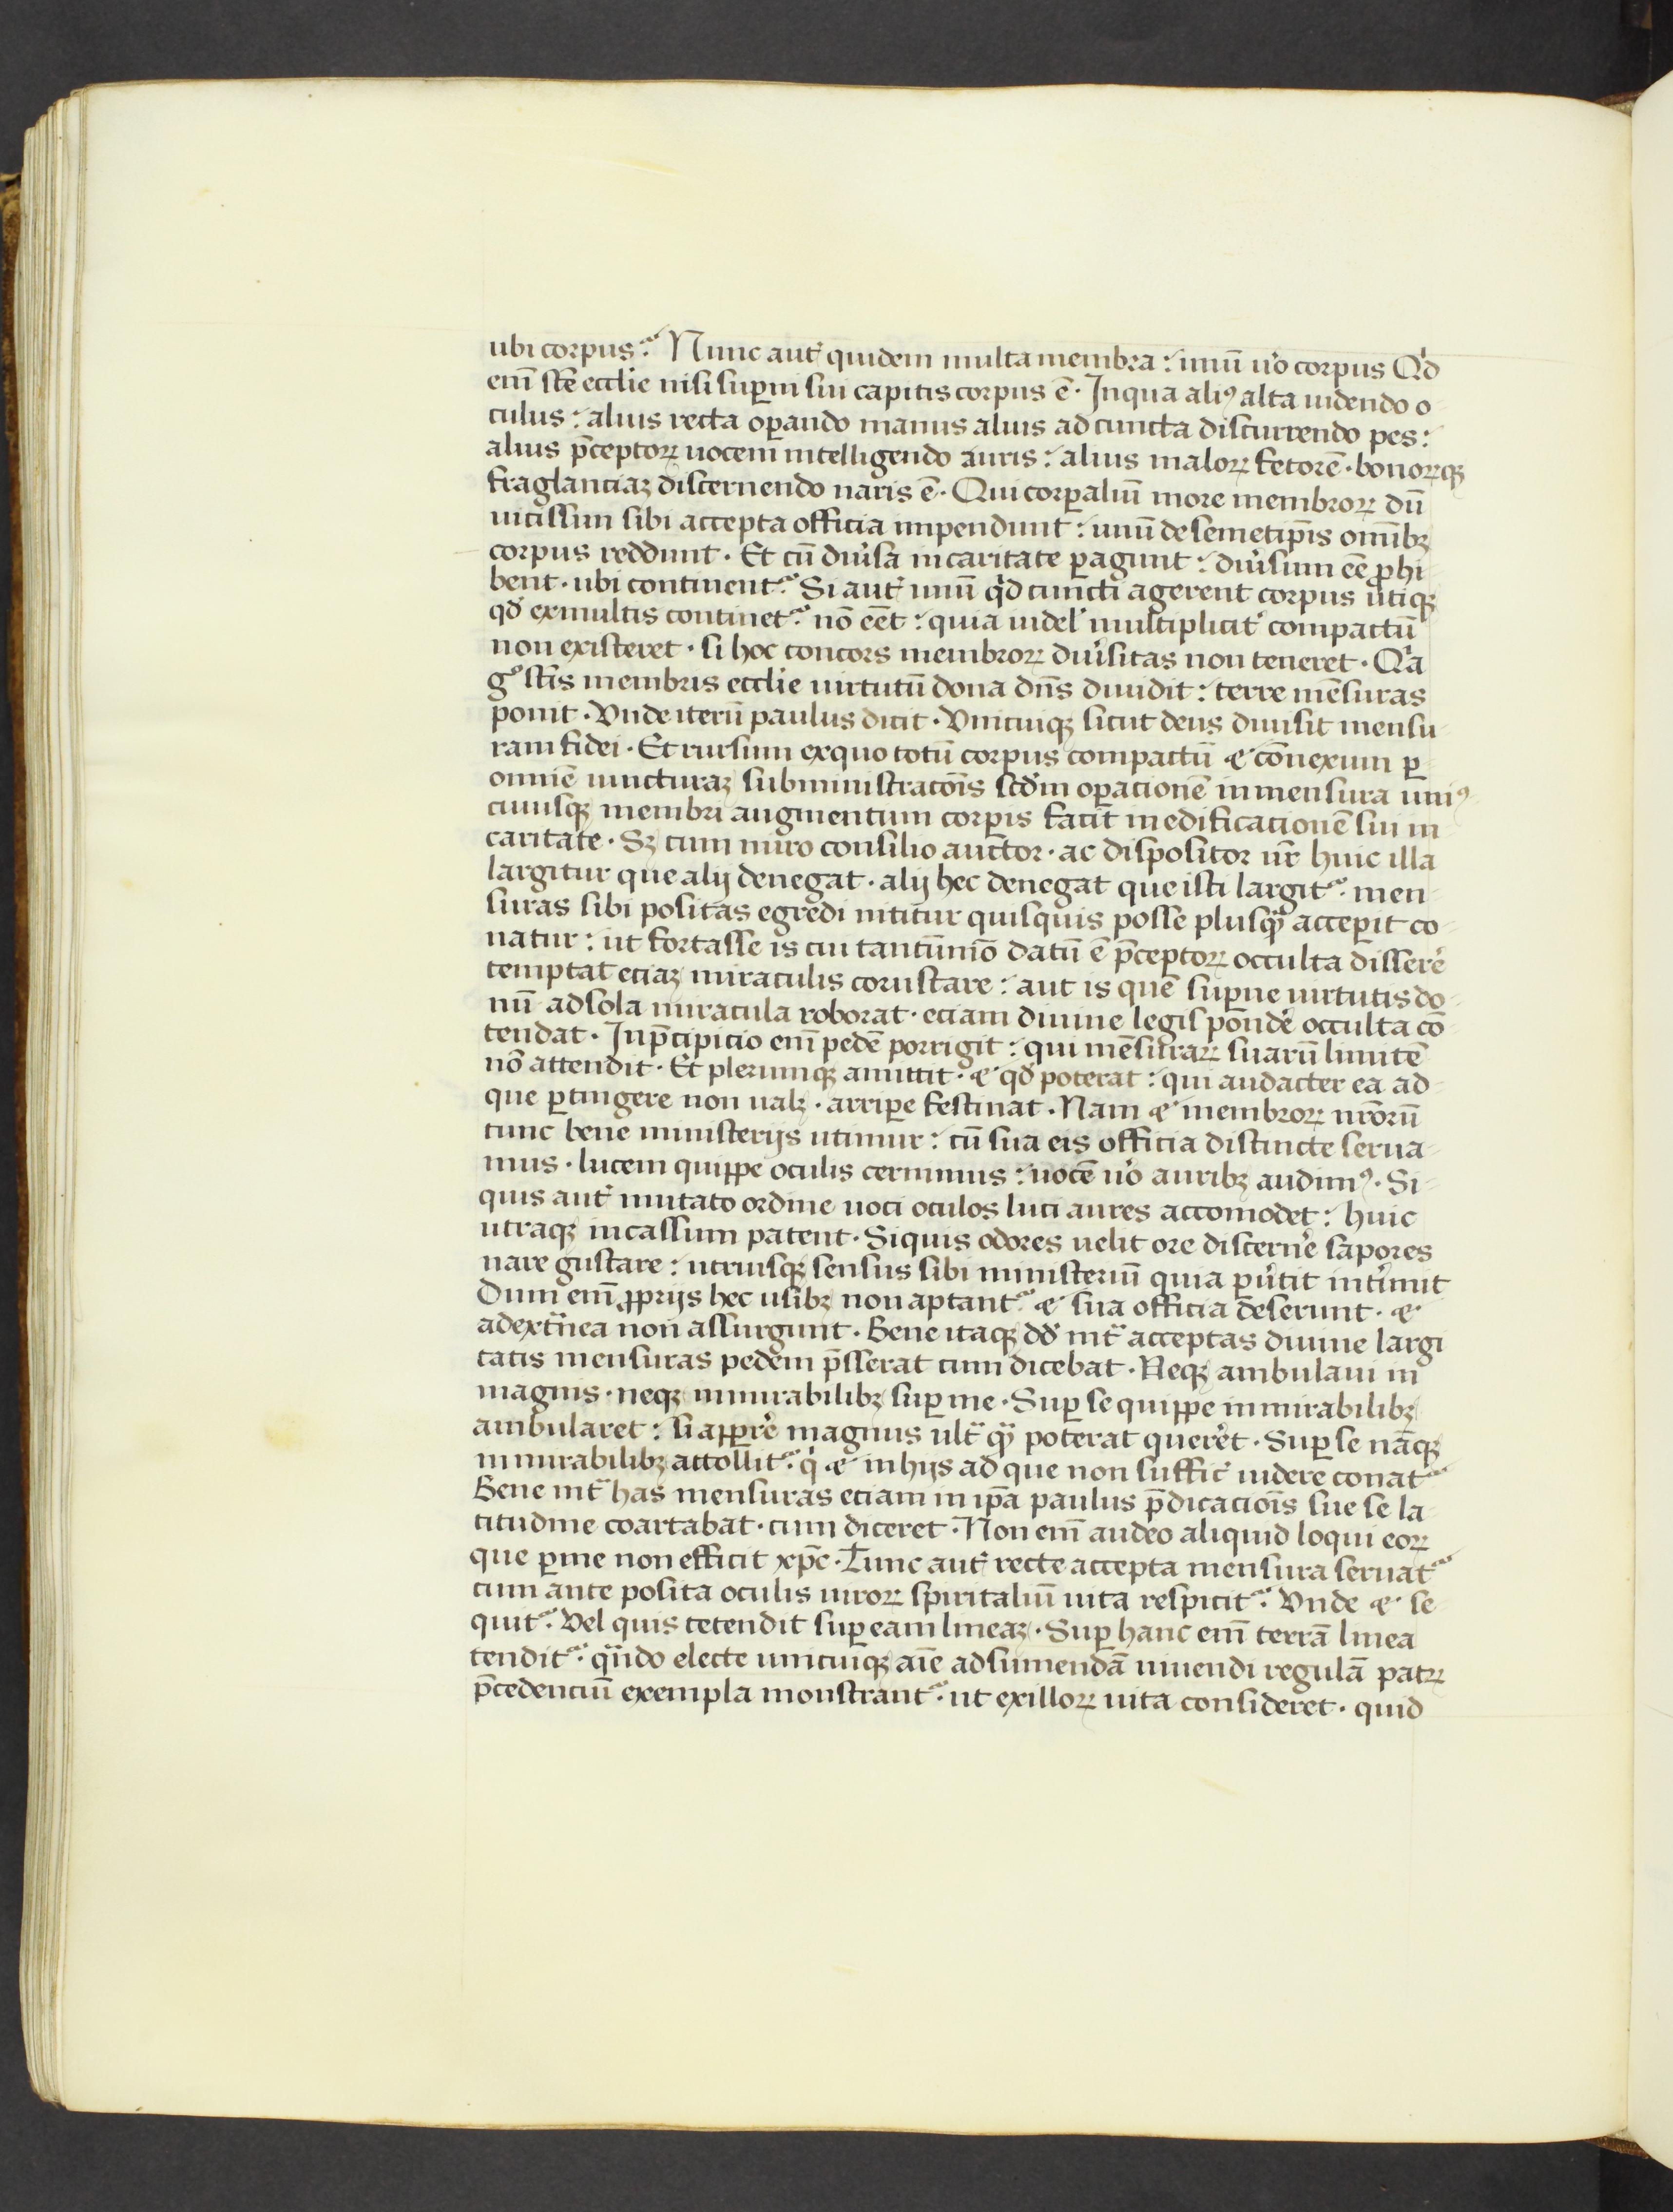 ubi corpus? Nunc aut̉ quidem multa membra: unū uo̓ corpus Qd̓
em̄ scē eccl̓ie nisi suꝑni sui capitis corpus ē · In qua aliꝰ alta uidendo o-
culus: alius recta oꝑando manus alius ad cuncta discurrendo pes:
alius p̄ceptoꝝ uocem intelligendo auris: alius maloꝝ fetorē · bonoꝝqꝫ
fraglanciaꝫ discernendo naris ē · Qui corꝑaliū more membroꝝ dū
uicissim sibi accepta officia impendunt: unū de semetip̄is omībꝫ
corpus reddunt · Et cū diu̓sa in caritate ꝑagunt: diu̓sum eē ꝓhi-
bent · ubi continentᷣ · Si aut̉ unū qd̓ cuncti agerent corpus utiqꝫ
qd̓ ex multis continetᷣ · nō eēt: quia uidel̓ multiplicit̓ compactū
non existeret · si hoc concors membroꝝ diu̓sitas non teneret · Qᷓa
gͦ scīs membris eccl̓ie uirtutū dona dn̄s diuidit: terre mēsuras
ponit · Vnde iterū paulus dicit · Vnicuiqꝫ sicut deus diuisit mensu-
ram fidei · Et rursum ex quo totū corpus compactū & cōnexum ꝑ
omnē iuncturaꝫ subministracōis scd̓m oꝑacionē in mensura uniꝰ-
cuiusqꝫ membri augmentum corꝑis facit in edificacionē sui in
caritate · Sꝫ cum miro consilio auctor · ac dispositor nr̄ huic illa
largitur que alij denegat · alij hec denegat que isti largitᷣ · men-
suras sibi positas egredi nititur quisquis posse plusqᷓ acceꝑit co-
natur: ut fortasse is cui tantūmō datū ē p̄ceptoꝝ occulta disserē
temptat eciaꝫ miraculis coruscare: aut is quē suꝑne uirtutis do-
nū ad sola miracula roborat · eciam diuine legis pōnde̓ occulta cō-
tendat · In p̄cipicio em̄ pedē porrigit: qui mēsuraꝝ suarū limitē
nō attendit · Et plerumqꝫ amittit · & qd̓ poterat: qui audacter ea ad
que ꝑtingere non ualꝫ · arriꝑe festinat · Nam & membroꝝ nr̄orū
tunc bene ministerijs utimur: cū sua eis officia distincte serua-
mus · lucem quippe oculis cernimus: uocē uo̓ auribꝫ audimꝰ · Si-
quis aut̉ mutato ordine uoci oculos luci aures accomodet: huic
utraqꝫ incassum patent · Siquis odores uelit ore discerne̓ sapores
nare gustare: utriusqꝫ sensus sibi ministeriū quia ꝑu̓tit int̓imit
Dum em̄ ꝓprijs hec usibꝫ non aptantᷣ · & sua officia deserunt · &
ad extᷓnea non assurgunt · Bene itaqꝫ dd̓ intᷓ acceptas diuine largi
tatis mensuras pedem p̄sserat cum dicebat · Neqꝫ ambulaui in
magnis · neqꝫ in mirabilibꝫ suꝑ me · Suꝑ se quippe in mirabilibꝫ
ambularet: si apꝑre̓ magnus ultᷓ qᷓ poterat quere̓t · Suꝑ se nāqꝫ
in mirabilibꝫ attollitᷣ · qͥ & in hijs ad que non suffic̓ uidere conatᷣ
Bene intᷓ has mensuras eciam in ip̄a paulus p̄dicaciōis sue se la
titudine coartabat · cum diceret · Non em̄ audeo aliquid loqui eoꝝ
que ꝑ me non efficit xp̄c · Tunc aut̉ recte accepta mensura seruatᷣ
cum ante posita oculis uiroꝝ spiritaliū uita respicitᷣ · Vnde & se
quitᷣ · Vel quis tetendit suꝑ eam lineaꝫ · Suꝑ hanc em̄ terrā linea
tenditᷣ · qᷓndo electe unicuiqꝫ aīe ad sumendā uiuendi regulā patꝝ
p̄cedenciū exempla monstrantᷣ · ut ex illoꝝ uita consideret · quid